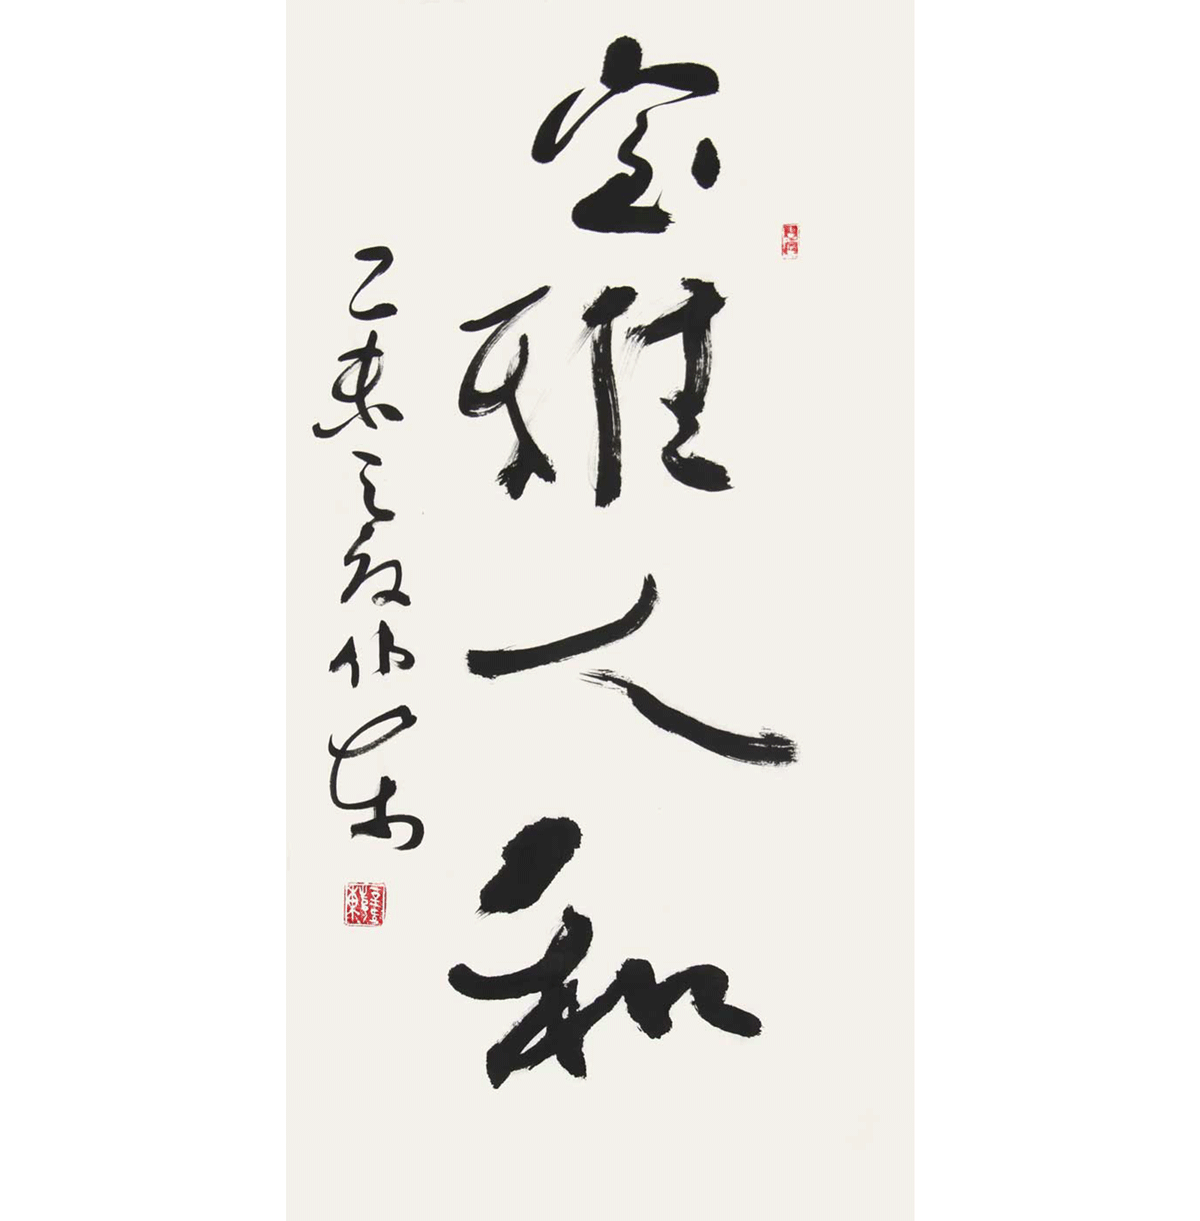 室雅人和
乙未之夏